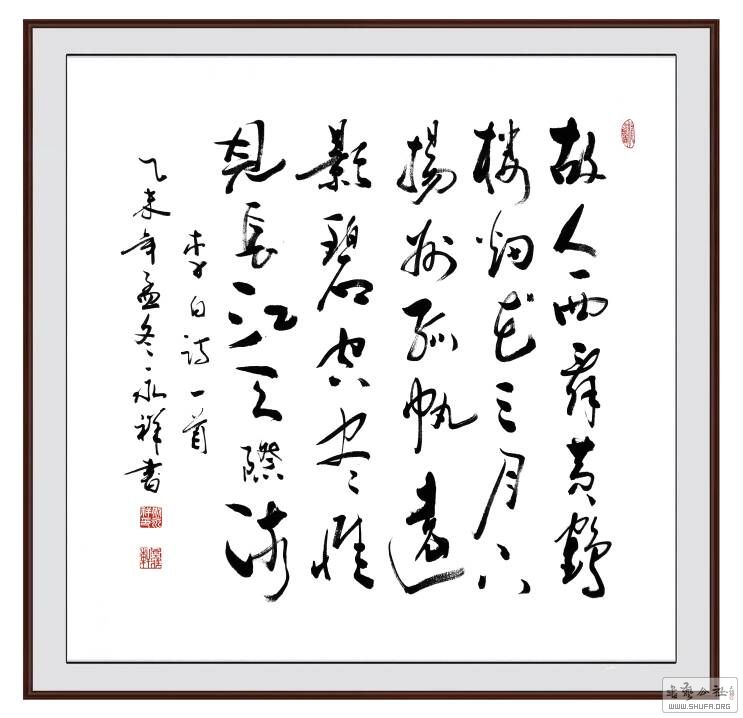 故人西辞黄鶴
楼烟花三月下
揚州孤帆遠
影碧空尽惟
見長江天際流
李白詩一首
乙未年孟冬永祥書
书艺公社
WWW.SHUFA.ORG